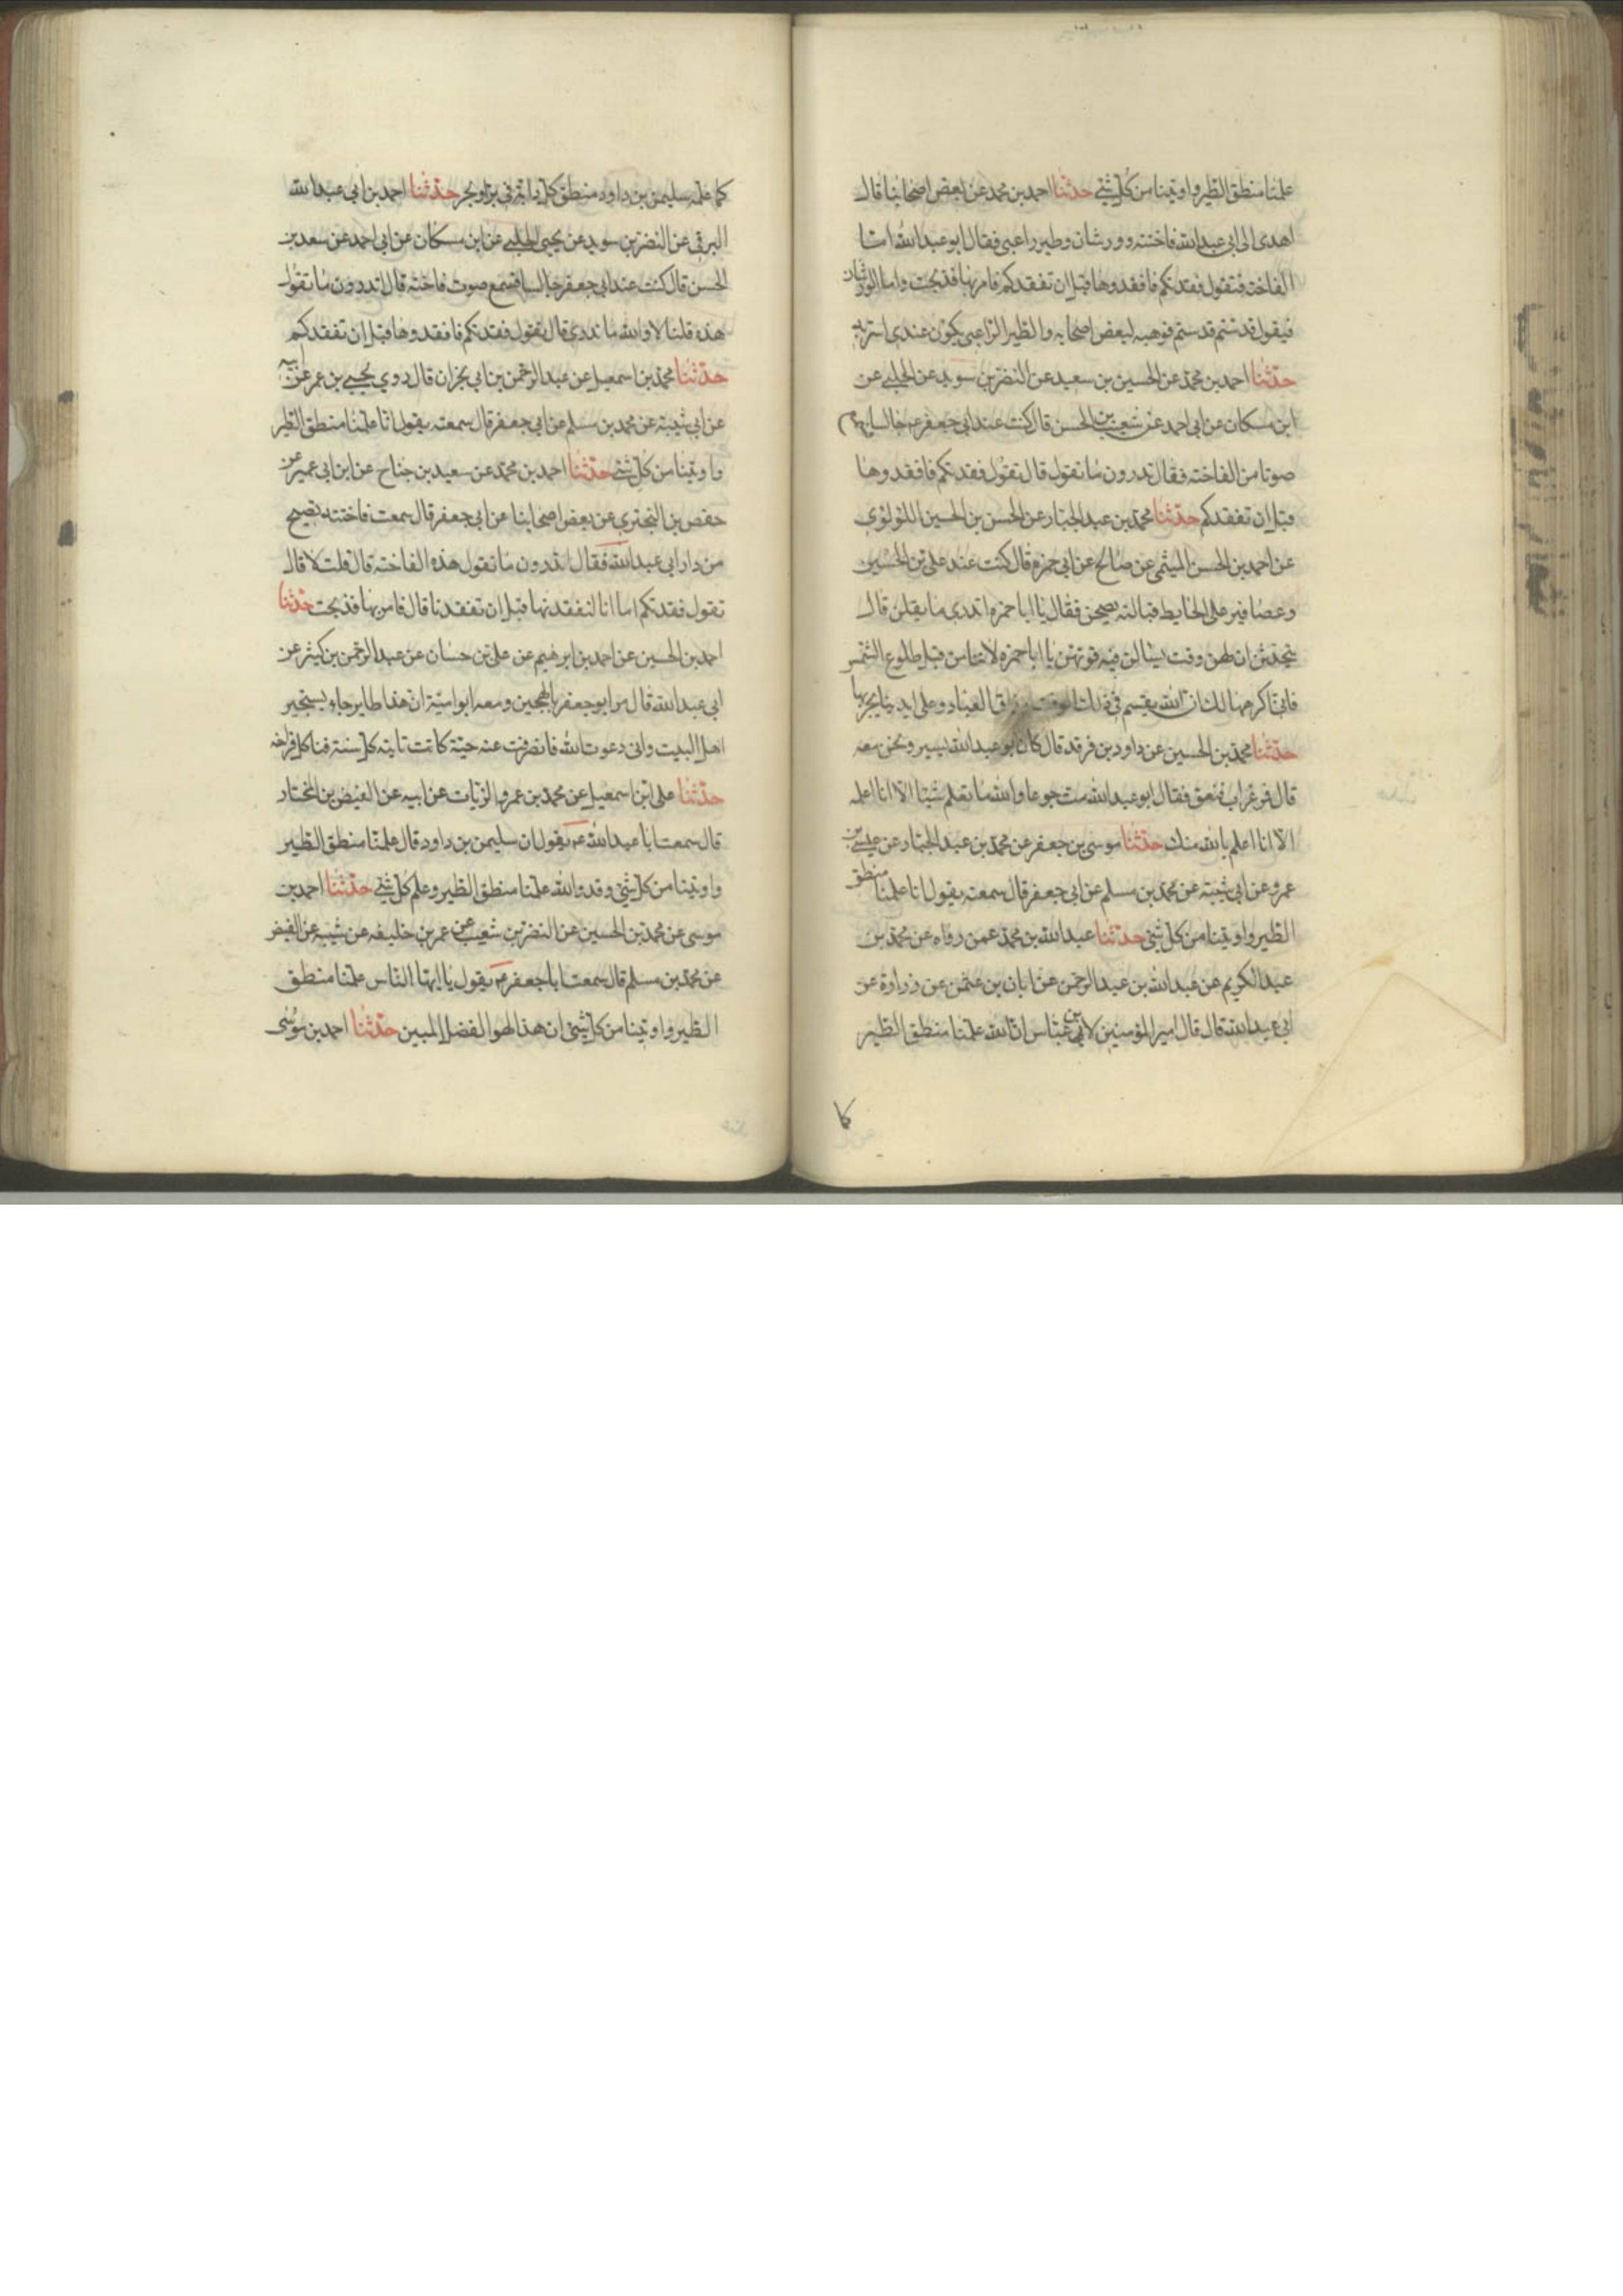 علمنا منطق الطير واوتينا من كل شئ حدثنا احمد بن محمد عن بعض اصحابنا قال
اهدى الى ابي عبد الله فاخته وورشان وطير راعبي فقال ابو عبد الله اما
الفاخته فتقول فقدتكم فافقدوها قبل ان تفقدكم فامر بها فذبحت واما الورشان
فيقول قدستم قدستم فوهبه لبعض اصحابه والطير الراعبي يكون عندي استر به
حدثنا احمد بن محمد عن الحسين بن سعيد عن النضر بن سويد عن الحلبي عن
ابن مسكان عن ابي احمد عن شعيب بن الحسن قال كنت عند ابي جعفر ع جالسا
صوتا من الفاخته فقال تدرون ما تقول قال تقول فقدتكم فافقدوها
قبل ان تفقدكم حدثنا محمد بن عبد الجبار عن الحسن بن الحسين اللولوي
عن احمد بن الحسن الميثمي عن صالح عن ابي حمزه قال كنت عند علي بن الحسين
وعصافير على الحايط قبالته يصحن فقال يا ابا حمزه اتدري ما يقلن قال
يتحدثن ان لهن وقت يسالن فيه قوتهن يا ابا حمزه لا تنامن قبل طلوع الشمس
فاني اكرهها لك ان الله يقسم في ذلك الوقت ارزاق العباد وعلى ايدينا يجريها
حدثنا محمد بن الحسين عن داود بن فرقد قال كان ابو عبد الله يسير ونحن معه
قال فر غراب فنعق فقال ابو عبد الله مت جوعا والله ما تعلم شيئا الا انا اعلمه
الا انا اعلم بالله منك حدثنا موسى بن جعفر عن محمد بن عبد الجبار عن عيسى بن
عمرو عن ابي شيبته عن محمد بن مسلم عن ابي جعفر قال سمعته يقول انا علمنا منطق
الطير واوتينا من كل شئ حدثنا عبد الله بن محمد عمن رواه عن محمد بن
عبد الكريم عن عبد الله بن عبد الرحمن عن ابان بن عثمن عن زرارة عن
ابي عبد الله قال قال امير المؤمنين لابن عباس ان الله علمنا منطق الطير
كما
كما علمه سليمن بن داود منطق كل دابة في بر او بحر حدثنا احمد بن ابي عبد الله
البرقي عن النضر بن سويد عن يحيى الحلبي عن ابن مسكان عن ابي احمد عن سعد بن
الحسن قال كنت عند ابي جعفر جالسا فسمع صوت فاخته قال تدرون ما تقول
هذه قلنا لا والله ما ندري قال تقول فقدتكم فافقدوها قبل ان تفقدكم
حدثنا محمد بن اسمعيل عن عبد الرحمن بن ابي نجران قال روي يحيى بن عمر عن ابيه
عن ابي شيبة عن محمد بن مسلم عن ابي جعفر قال سمعته يقول انا علمنا منطق الطير
واوتينا من كل شئ حدثنا احمد بن محمد عن سعيد بن جناح عن ابن ابي عمير عن
حفص بن البختري عن بعض اصحابنا عن ابي جعفر قال سمعت فاختة تصيح
من دار ابي عبد الله فقال اتدرون ما تقول هذه الفاخته قال قلت لا قال
تقول فقدتكم اما انا لنفقدنها قبل ان تفقدنا قال فامر بها فذبحت حدثنا
احمد بن الحسين عن احمد بن ابرهيم عن علي بن حسان عن عبد الرحمن بن كثير عن
ابي عبد الله قال مر ابو جعفر بالهجين ومعه ابو امية ان هذا طاير جاء يستجير
اهل البيت واني دعوت الله فانصرفت عنه حية كانت تاتيه كل سنة فتاكل فراخه
حدثنا علي ابن اسمعيل عن محمد بن عمرو الزيات عن ابيه عن الفيض بن المختار
قال سمعت ابا عبد الله ع يقول ان سليمن بن داود قال علمنا منطق الطير
واوتينا من كل شئ وقد والله علمنا منطق الطير وعلم كل شئ حدثنا احمد بن
موسى عن محمد بن الحسين عن النضر بن شعيب عن عمر بن خليفه عن شيبه عن الفيض
عن محمد بن مسلم قال سمعت ابا جعفر ع يقول يا ايها الناس علمنا منطق
الطير واوتينا من كل شئ ان هذا لهو الفضل المبين حدثنا احمد بن موسى